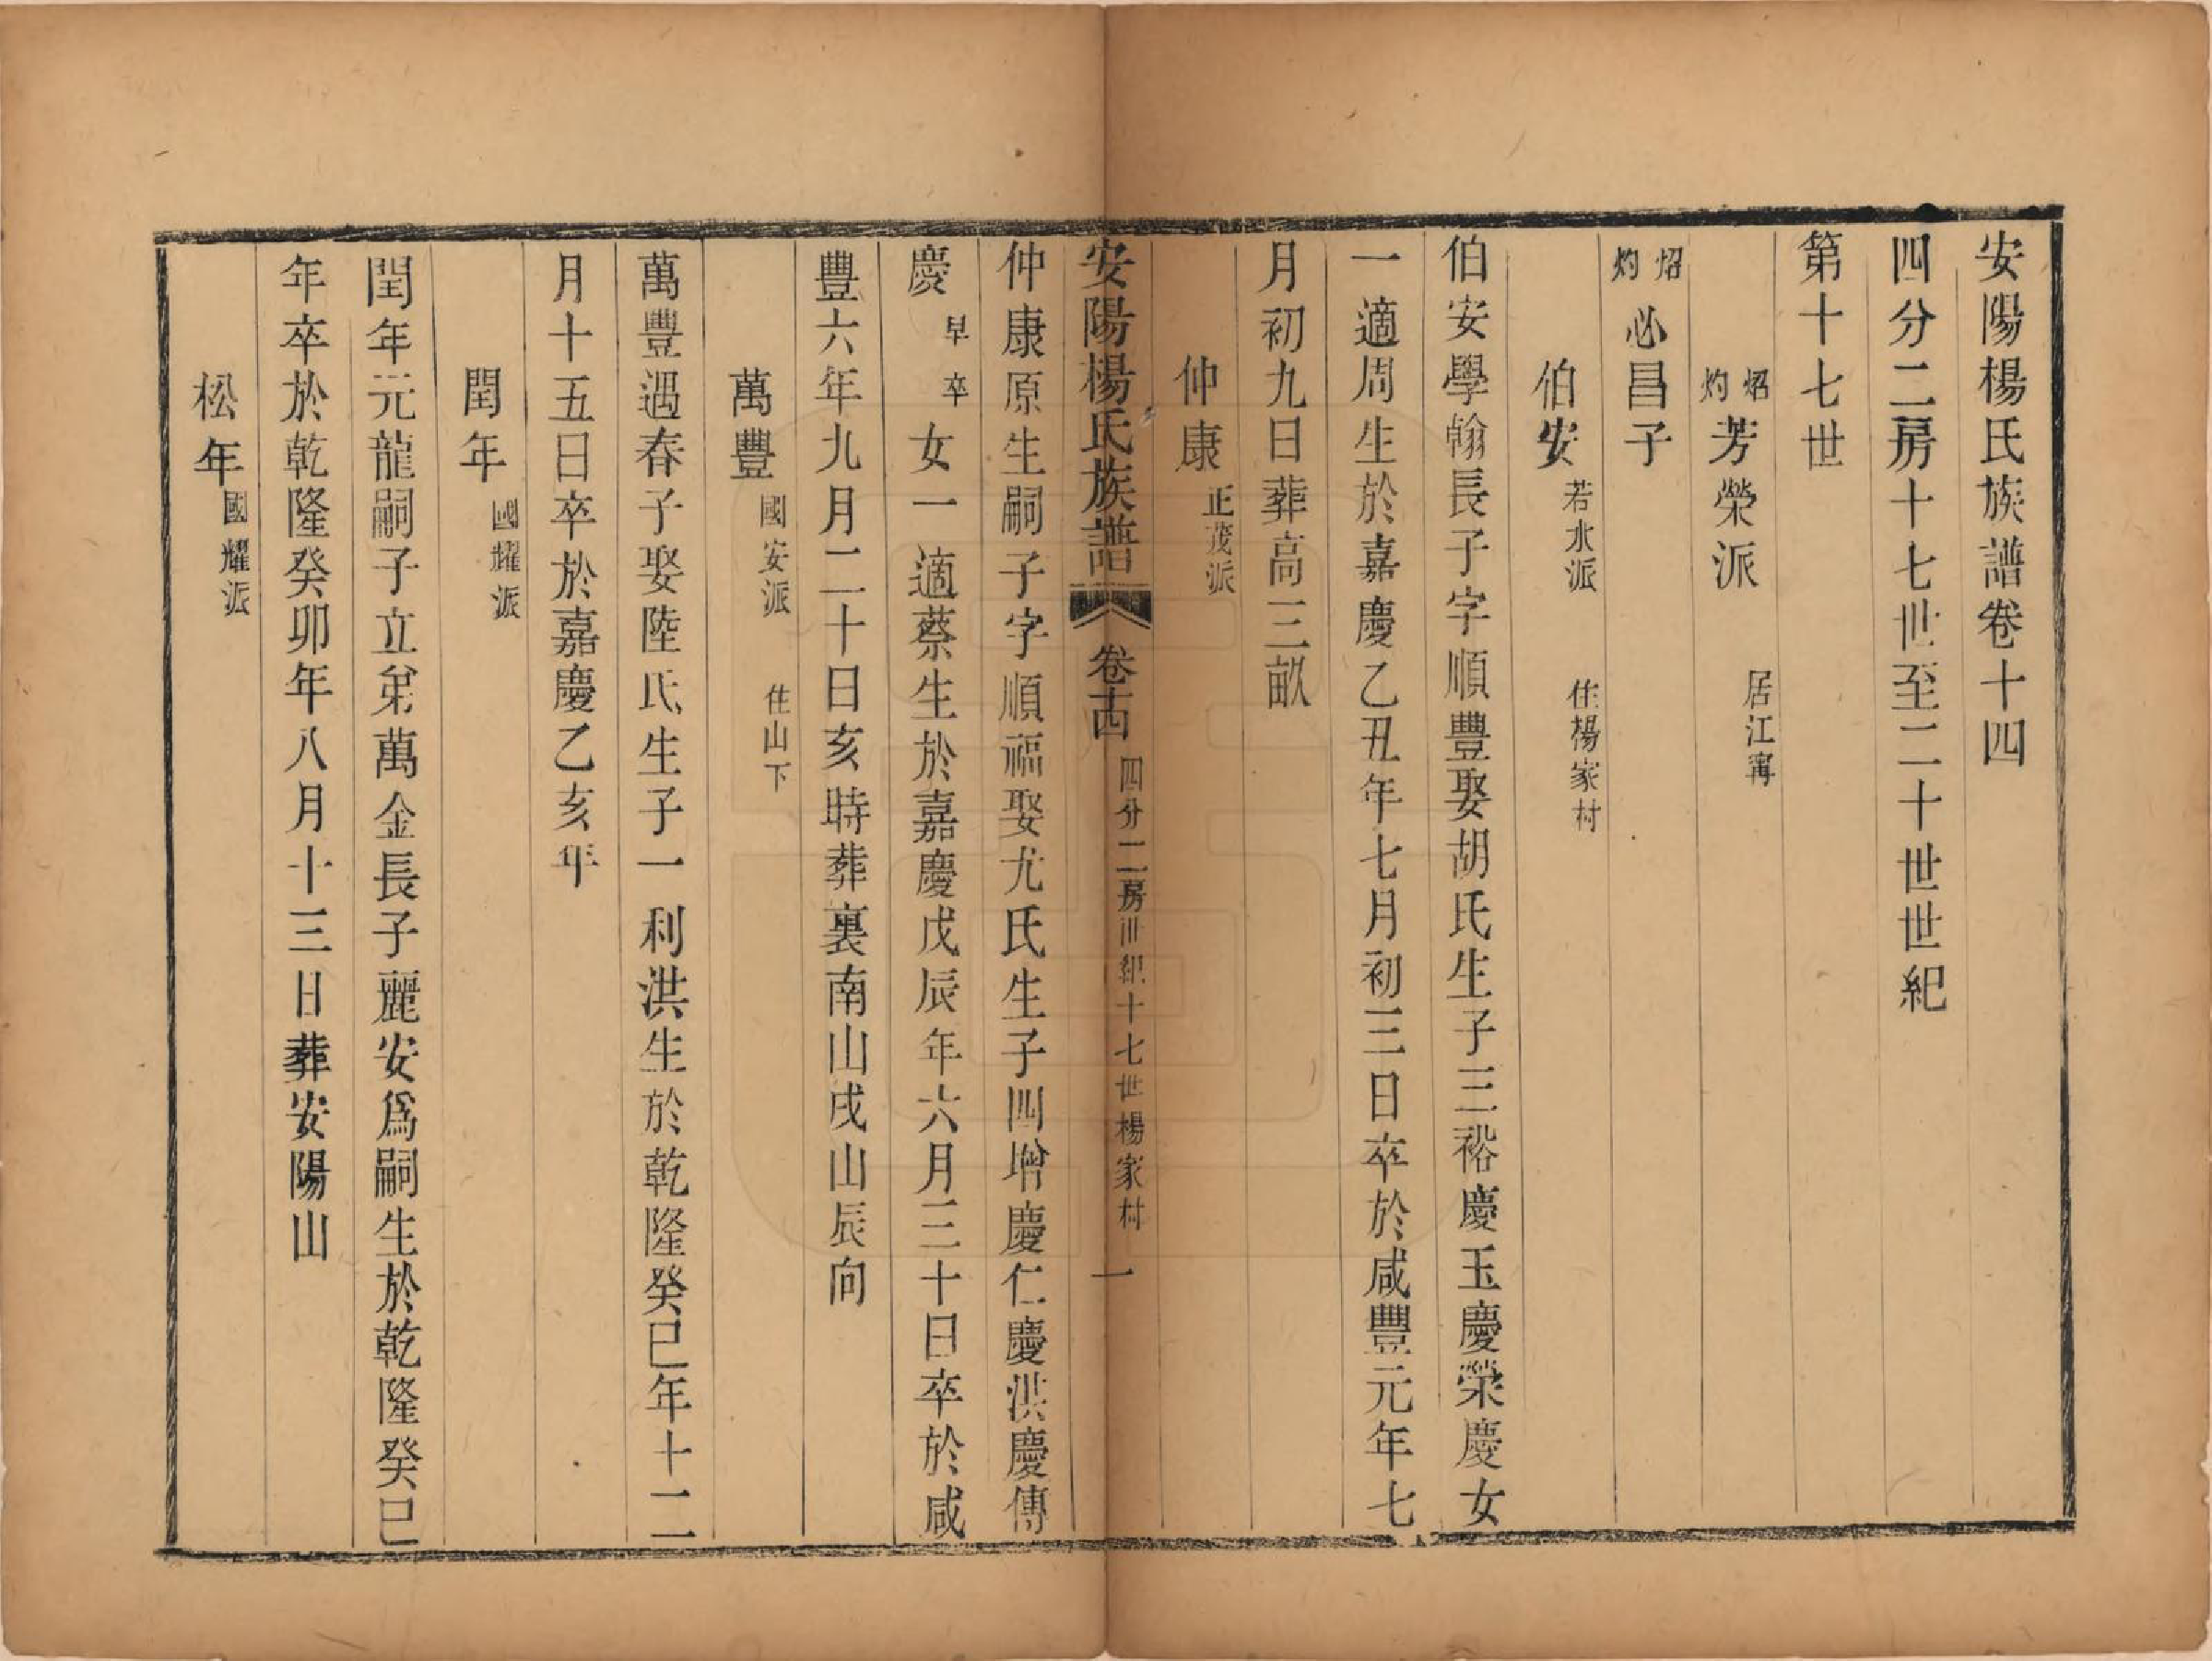 安陽楊氏族譜卷十四
四分二房十七世至二十世世紀
第十七世
炤灼芳榮派 居江甯
炤灼必昌子
伯安 若水派 住楊家村
伯安學翰長子字順豐娶胡氏生子三裕慶玉慶榮慶女
一適周生於嘉慶乙丑年七月初三日卒於咸豐元年七
月初九日葬高三畝
仲康 正茂派
安陽楊氏族譜 卷十四 四分二房世紀十七世楊家村 一
仲康原生嗣子字順福娶尤氏生子四增慶仁慶洪慶傳
慶早卒女一適蔡生於嘉慶戊辰年六月三十日卒於咸
豐六年九月二十日亥時葬裏南山戌山辰向
萬豐 國安派 住山下
萬豐遇春子娶陸氏生子一利洪生於乾隆癸巳年十二
月十五日卒於嘉慶乙亥年
閏年 國耀派
閏年元龍嗣子立弟萬金長子麗安爲嗣生於乾隆癸巳
年卒於乾隆癸卯年八月十三日葬安陽山
松年 國耀派